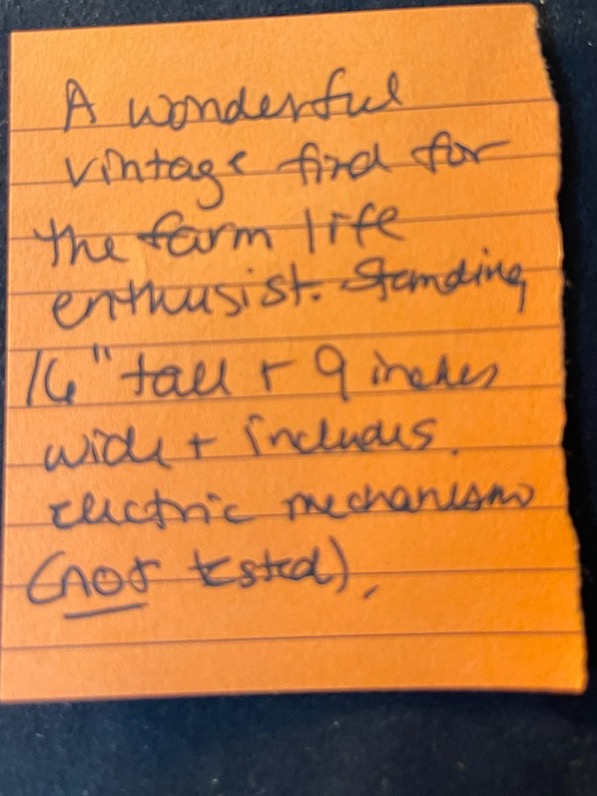 A wonderful
vintage find for
the farm life
enthusist. Standing
16" tall + 9 inches
wide + includes
electric mechanism
(not tested).